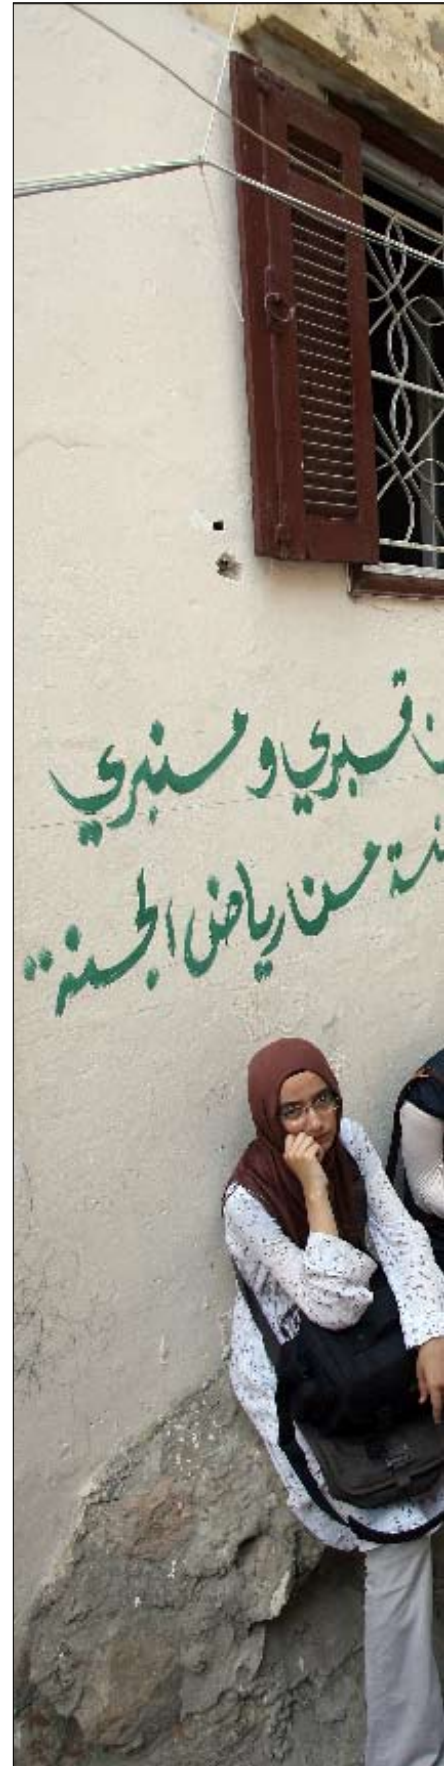 قبري و منبري
من رياض الجنة